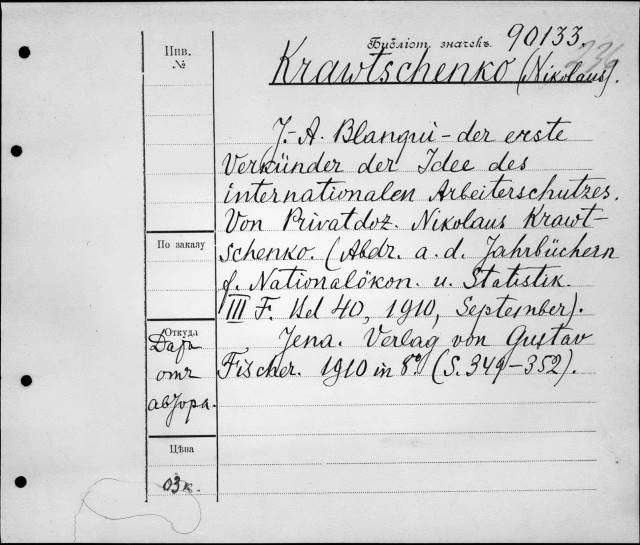 Инв.
№
Библіот. значекъ 90133.
Krawtschenko (Nikolaus).
J.-A. Blanqui - der erste
Verkünder der Idee des
internationalen Arbeiterschutzes.
Von Privatdoz. Nikolaus Krawt-
schenko. (Abdr. a. d. Jahrbüchern
f. Nationalökon. u. Statistik.
III F. Bd 40, 1910, September).
Jena. Verlag von Gustav
Fischer. 1910 in 8º. (S. 349-352).
По заказу
Откуда
Даръ
отъ
автора.
Цѣна
03 к.